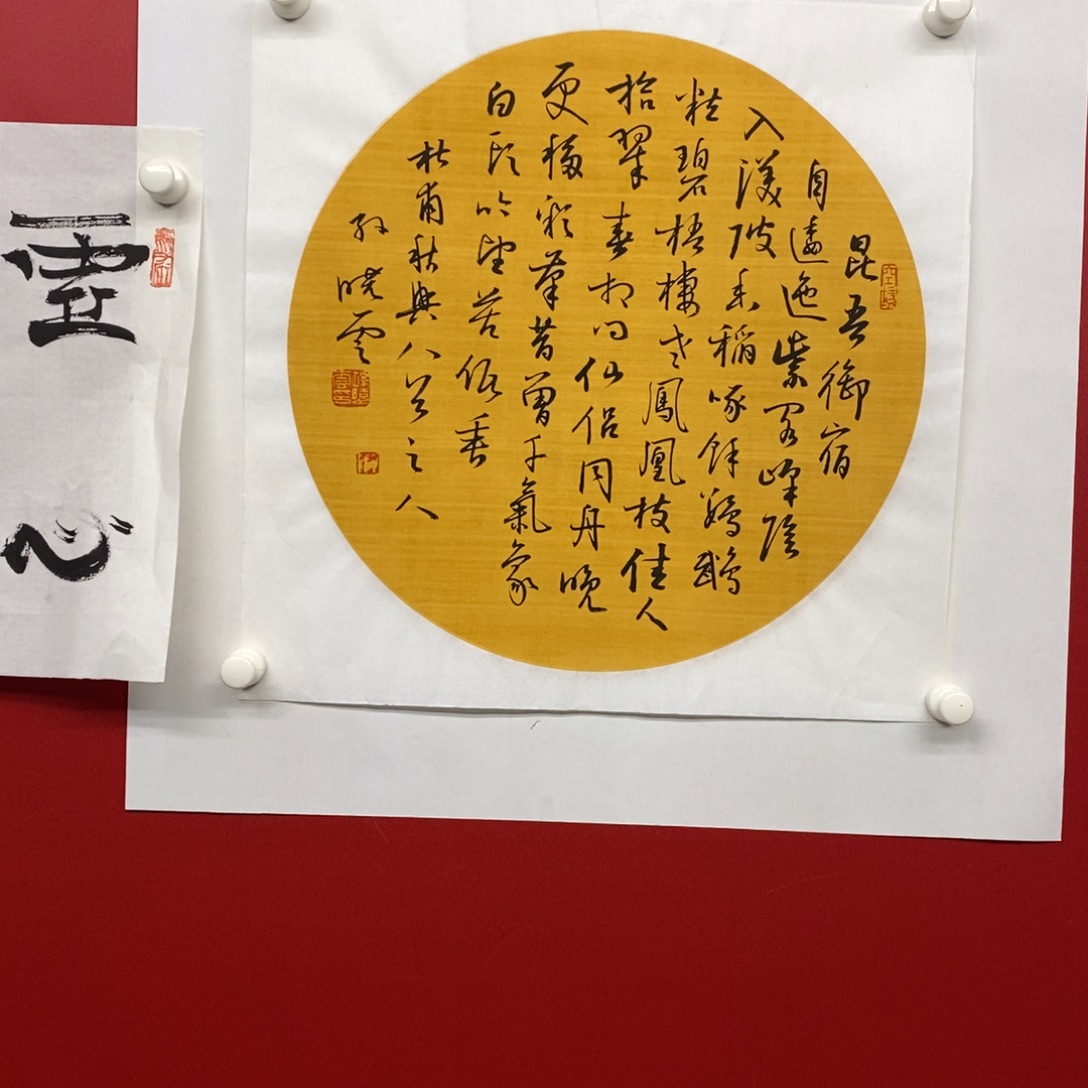 昆吾御宿
自逶迤紫閣峰陰
入渼陂香稻啄餘鸚鵡
粒碧梧棲老鳳凰枝佳人
拾翠春相問仙侶同舟晚
更移彩筆昔曾干氣象
白頭吟望苦低垂
杜甫秋興八首之八
孫曉雲
心